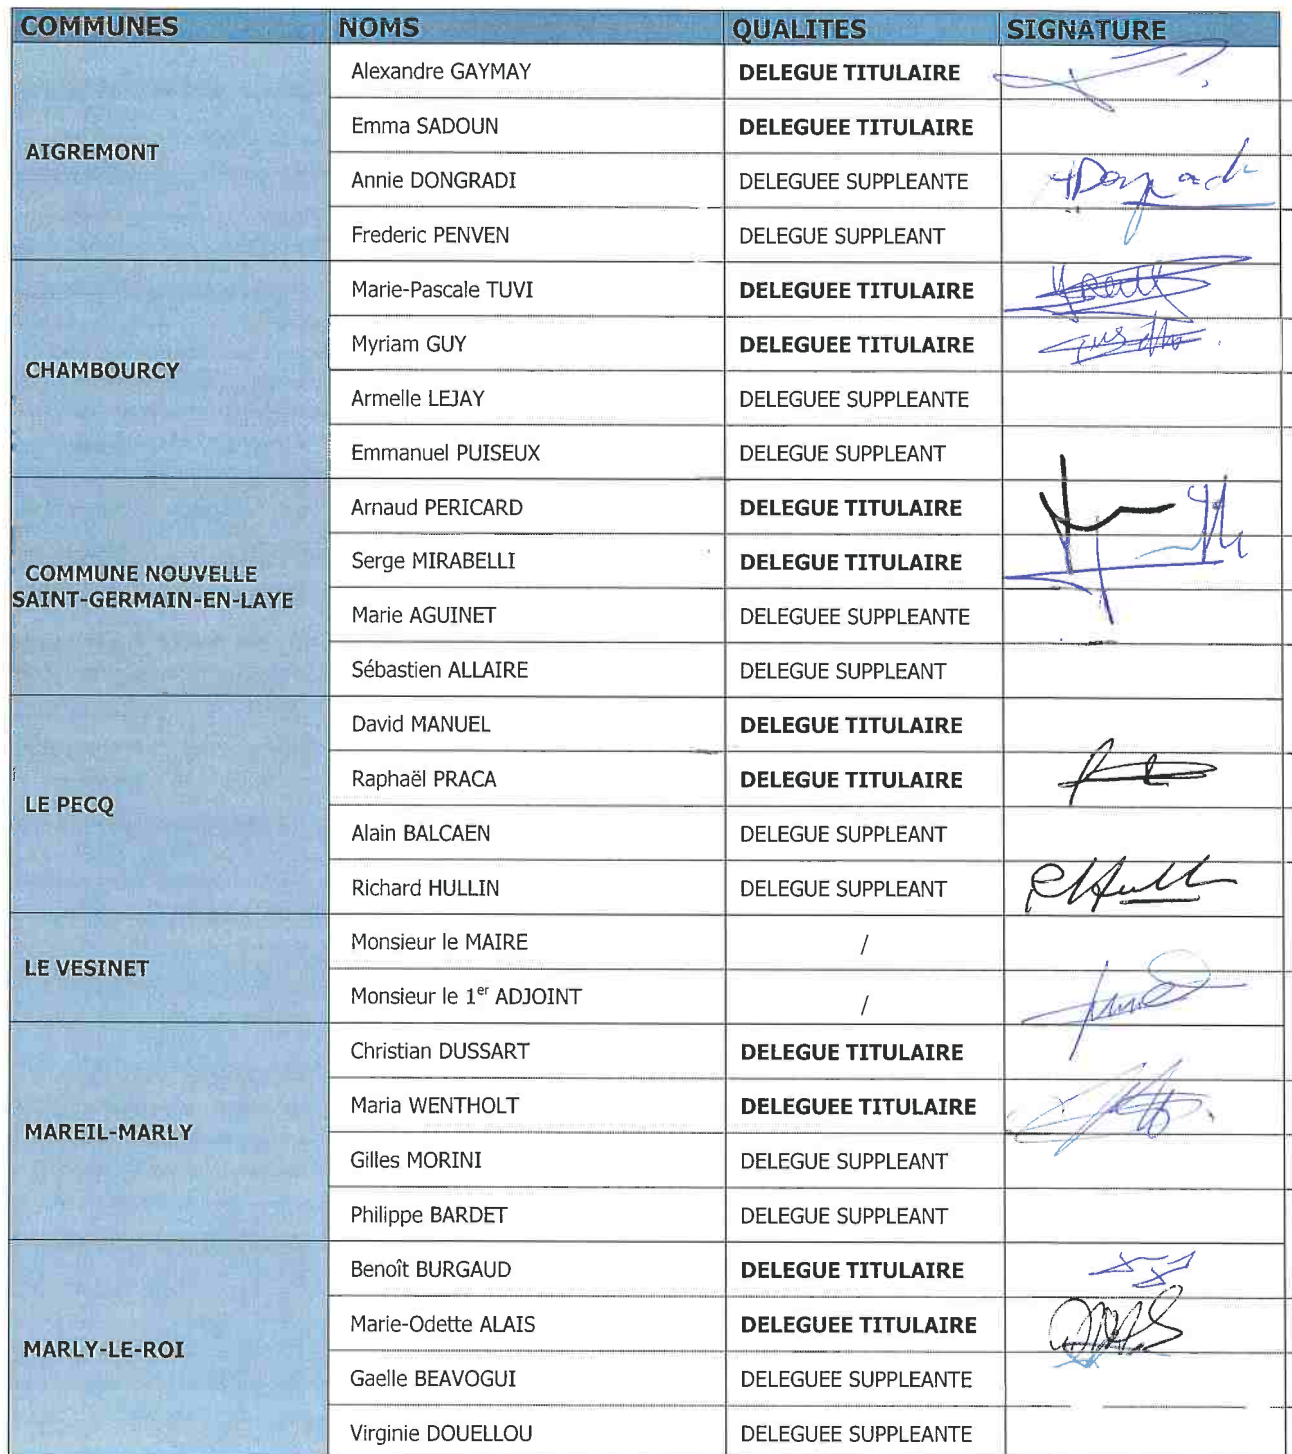 COMMUNES NOMS QUALITES SIGNATURE
AIGREMONT
Alexandre GAYMAY DELEGUE TITULAIRE
Emma SADOUN DELEGUEE TITULAIRE
Annie DONGRADI DELEGUEE SUPPLEANTE
Frederic PENVEN DELEGUE SUPPLEANT
CHAMBOURCY
Marie-Pascale TUVI DELEGUEE TITULAIRE
Myriam GUY DELEGUEE TITULAIRE
Armelle LEJAY DELEGUEE SUPPLEANTE
Emmanuel PUISEUX DELEGUE SUPPLEANT
COMMUNE NOUVELLE
SAINT-GERMAIN-EN-LAYE
Arnaud PERICARD DELEGUE TITULAIRE
Serge MIRABELLI DELEGUE TITULAIRE
Marie AGUINET DELEGUEE SUPPLEANTE
Sébastien ALLAIRE DELEGUE SUPPLEANT
LE PECQ
David MANUEL DELEGUE TITULAIRE
Raphaël PRACA DELEGUE TITULAIRE
Alain BALCAEN DELEGUE SUPPLEANT
Richard HULLIN DELEGUE SUPPLEANT
LE VESINET
Monsieur le MAIRE /
Monsieur le 1er ADJOINT /
MAREIL-MARLY
Christian DUSSART DELEGUE TITULAIRE
Maria WENTHOLT DELEGUEE TITULAIRE
Gilles MORINI DELEGUE SUPPLEANT
Philippe BARDET DELEGUE SUPPLEANT
MARLY-LE-ROI
Benoît BURGAUD DELEGUE TITULAIRE
Marie-Odette ALAIS DELEGUEE TITULAIRE
Gaelle BEAVOGUI DELEGUEE SUPPLEANTE
Virginie DOUELLOU DELEGUEE SUPPLEANTE